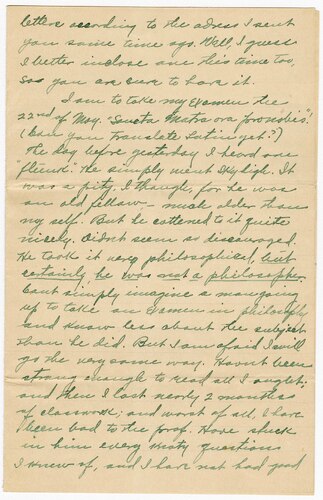 letters according to the adress I sent
you some time ago. Well, I guess
I better inclose one this time too,
sos you are sure to have it.
I am to take my Examen the
22nd of May. "Sancta Matra ora pro nobis"!
(Can you translate Latin yet?)
The day before yesterday I heard one
"flunk." He simply went sky high. It
was a pity, I though, for he was
an old fellow – much older than
my self. But he cottened to it quite
nicely. Didnt seem so discouraged.
He took it very philosophical, but
certainly he was not a philosopher.
Cant simply imagine a man going
up to take an Examen in philosophy
and know less about the subject
than he did. But I am afraid I will
go the very same way. Havnt been
strong enough to read all I ought;
and then I lost nearly 2 months
of classwork; and worst of all, I have
been bad to the prof. Have stuck
in him every knoty question
I knew of, and I have not had good